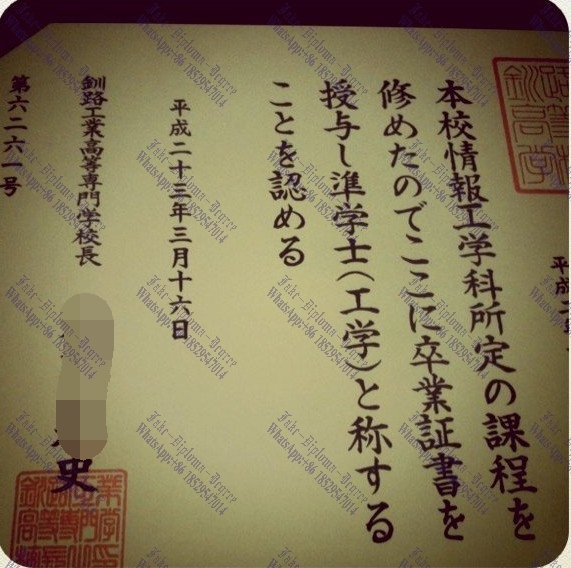 平成
本校情報工学科所定の課程を
修めたのでここに卒業証書を
授与し準学士(工学)と称する
ことを認める
平成二十三年三月十六日
釧路工業高等専門学校長
史
第六二六一号
Fake-Diploma-Degree
WhatsApp:+86 18529547014